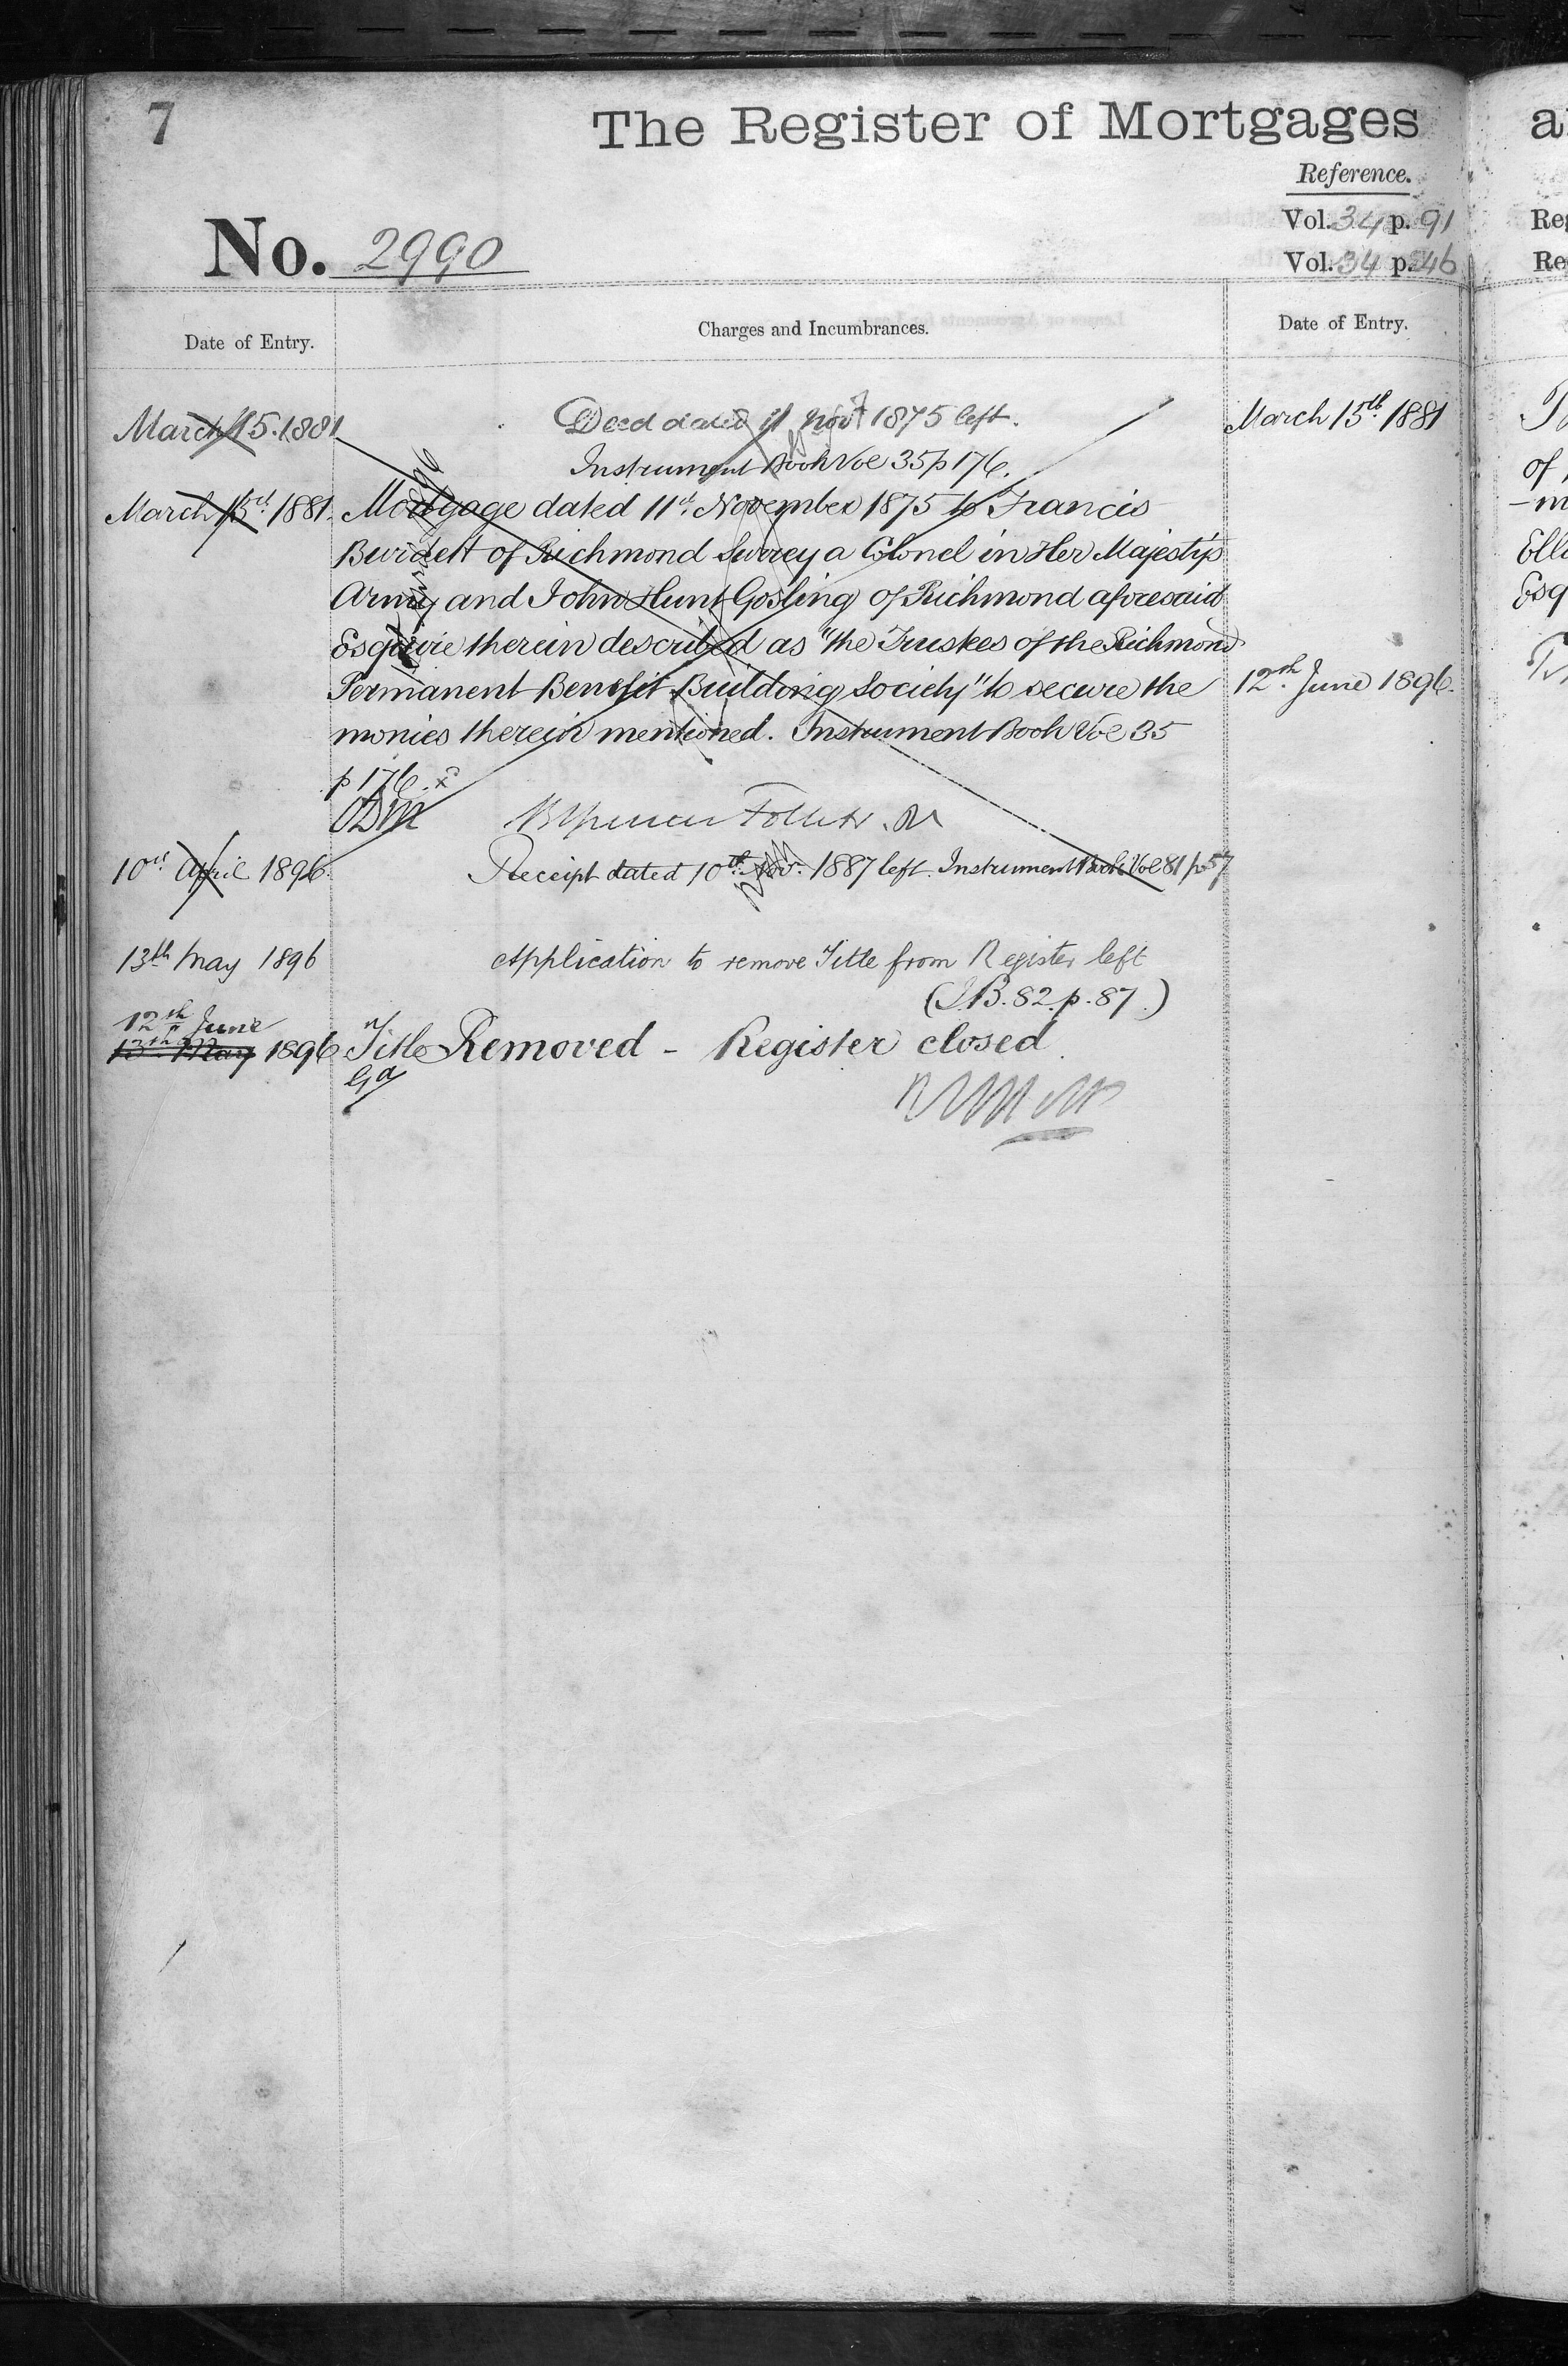 7
The Register of Mortgages
Reference.
Vol. 34 p. 91
Vol. 34 p. 46
No. 2990
Date of Entry.
Charges and Incumbrances.
Date of Entry.
March 15. 1881
Deed dated 11 Novr 1875 left.
March 15th 1881
Instrument Book Vol 35 p 176.
March 15th 1881.
Mortgage dated 11th November 1875 to Francis
Burdett of Richmond Surrey a Colonel in Her Majesty's
Army and John Hunt Gosling of Richmond aforesaid
Esquire therein described as "the Trustees of the Richmond
Permanent Benefit Building Society" to secure the
12th June 1896.
monies therein mentioned. Instrument Book Vol 35
p 176.
10th April 1896.
Receipt dated 10th Nov. 1887 left. Instrument Book Vol 81 p 57
13th May 1896
Application to remove Title from Register left
(I.B. 82. p. 87.)
12th June
13th May 1896
Title Removed - Register closed
a
Reg
Re
of
Ell
Esq